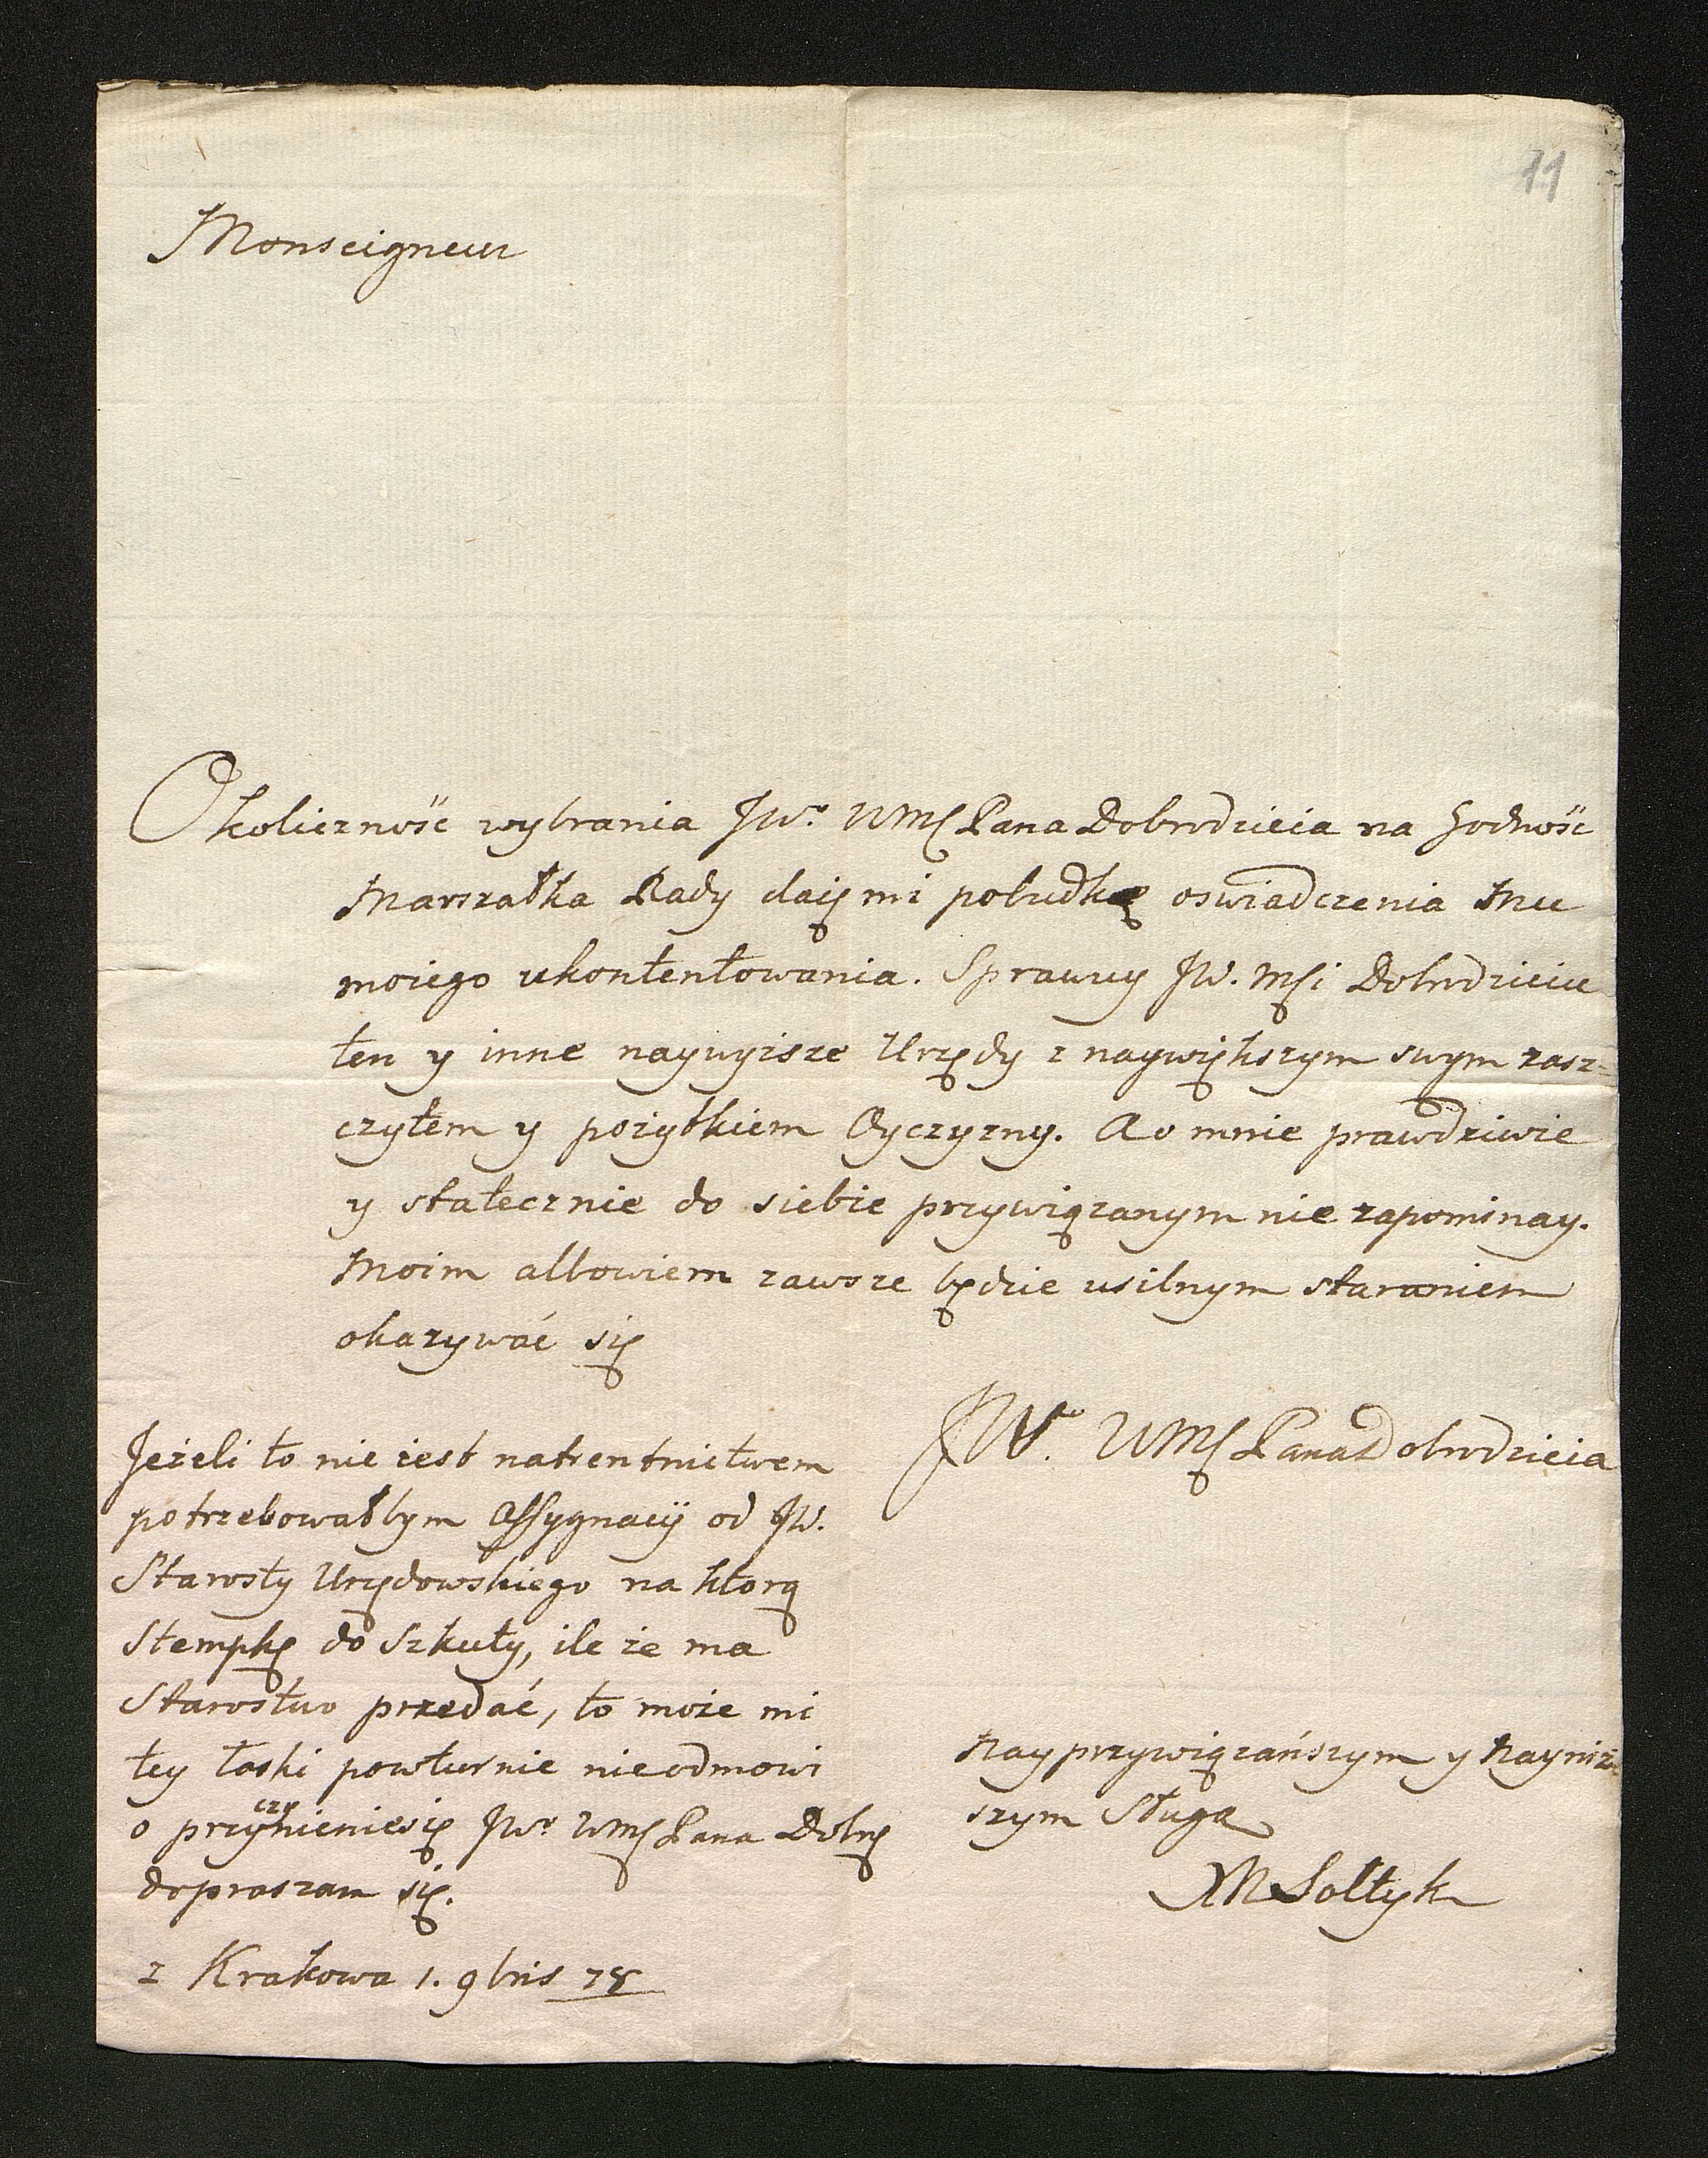 11
Monseigneur
Okoliczność wybrania JWo. WMę Pana Dobrodzieia na godność
Marszałka Rady daię mi pobudkę oswiadczenia Mu
moiego ukontentowania. Sprawuy JW. Mści Dobrodzieiu
ten y inne naywyższe Urzędy z naywiększym swym zasz-
czytem y pożytkiem Oyczyzny. A o mnie prawdziwie
y statecznie do siebie przywiązanym nie zapominay.
Moim albowiem zawsze będzie usilnym staraniem
okazywać się
JWo. WMę Pana Dobrodzieia
Nayprzywiązańszym y Nayniż-
szym Sługą
M Sołtyk
Jeżeli to nie iest natrentnictwem
potrzebowałbym Assygnacÿ od JW.
Starosty Urzędowskiego na ktorą
Stempkę do Szkuty, ile że ma
Starostwo przedać, to może mi
tey łaski powturnie nieodmowi
o przyczynieniesię JWo WMę Pana Dobrę
dopraszam się.
z Krakowa 1. 9bris 78